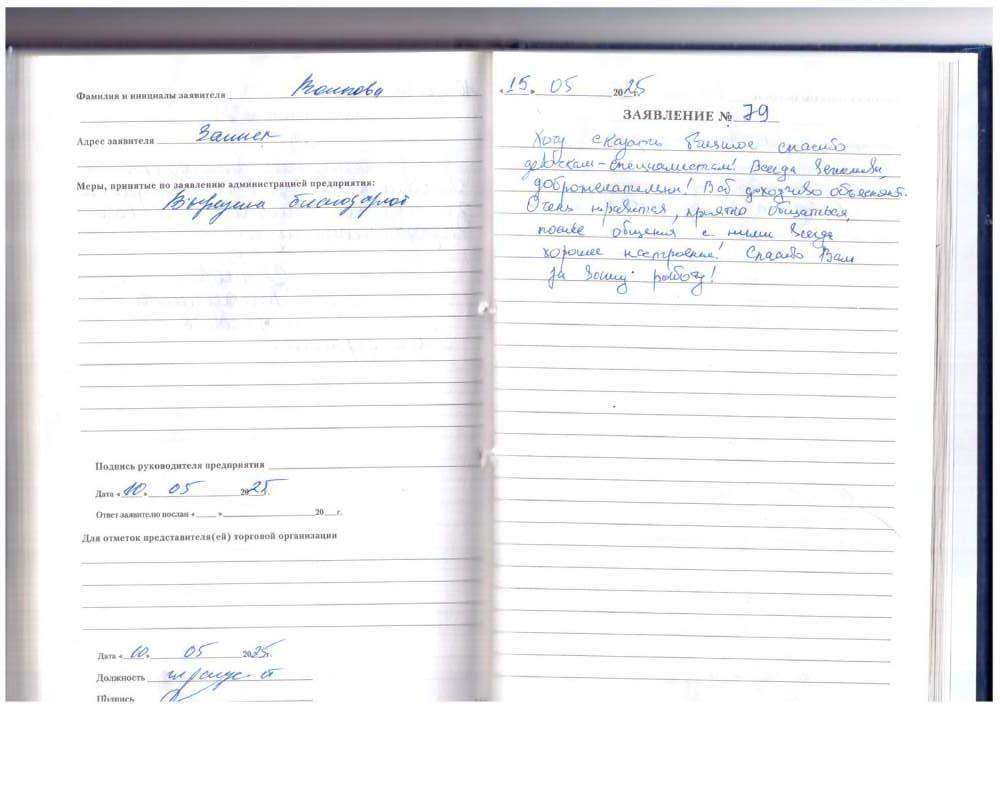 Фамилия и инициалы заявителя Волкова
Адрес заявителя
Меры, принятые по заявлению администрацией предприятия:
Подпись руководителя предприятия
Дата «10» 05 2025г.
Ответ заявителю послан « » 20 г.
Для отметок представителя(ей) торговой организации
Дата «10» 05 2025г.
Должность
Подпись
«15» 05 2025г.
ЗАЯВЛЕНИЕ № 79
Хочу сказать большое спасибо
девочкам-специалистам! Всегда вежливы,
доброжелательны! Всё доходчиво объясняют.
Очень нравится, приятно общаться,
после общения с ними всегда
хорошее настроение! Спасибо Вам
за вашу работу!